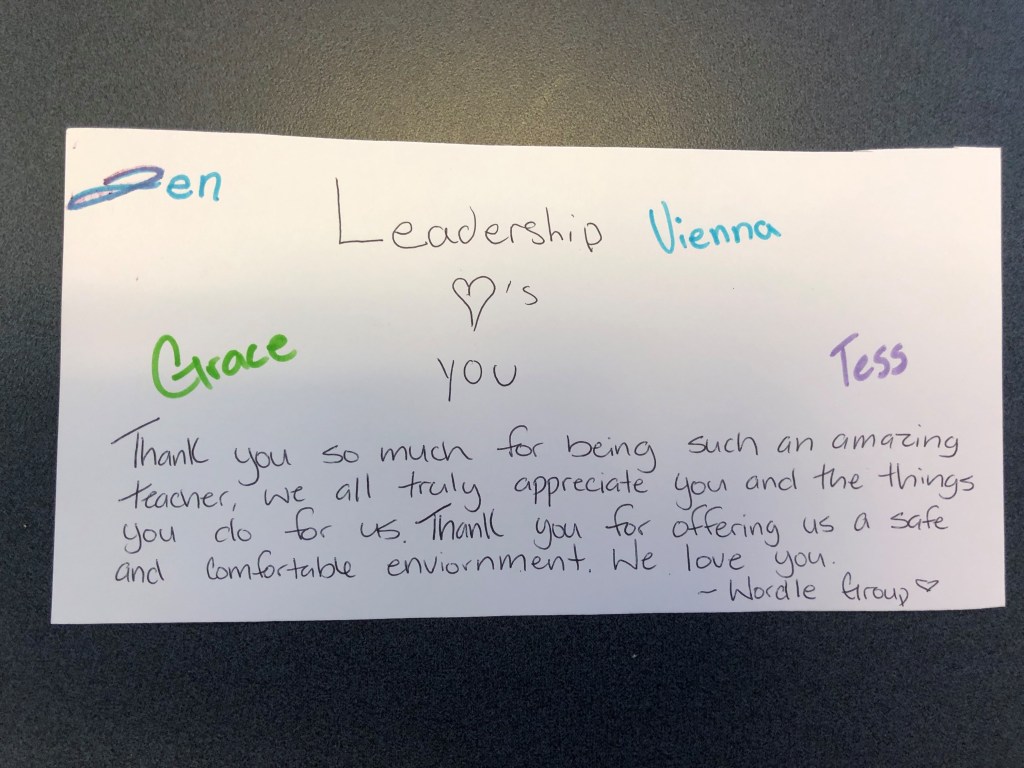 en
Leadership Vienna
♡'s
you
Grace
Tess
Thank you so much for being such an amazing
teacher, we all truly appreciate you and the things
you do for us. Thank you for offering us a safe
and comfortable enviornment. We love you.
~ Wordle Group ♡